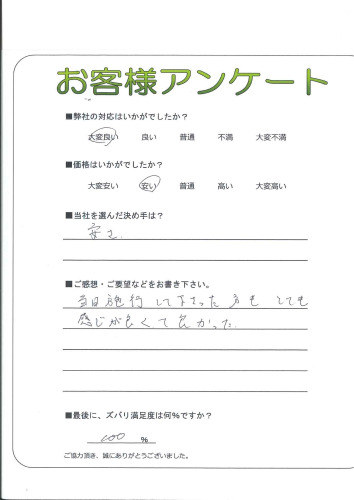 お客様アンケート
■弊社の対応はいかがでしたか？
大変良い 良い 普通 不満 大変不満
■価格はいかがでしたか？
大変安い 安い 普通 高い 大変高い
■当社を選んだ決め手は？
安さ
■ご感想・ご要望などをお書き下さい。
当日施行して下さった方も とても
感じが良くて良かった
■最後に、ズバリ満足度は何%ですか？
100 %
ご協力頂き、誠にありがとうございました。